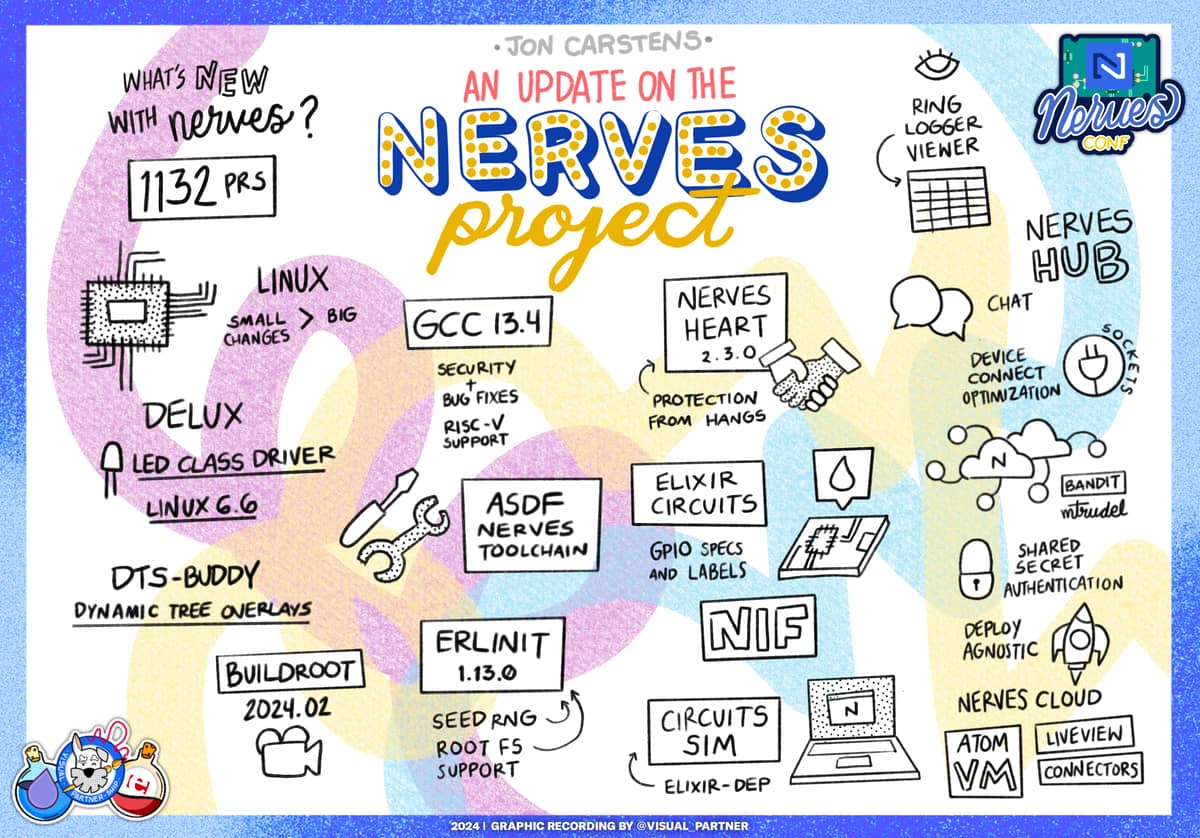 ·JON CARSTENS·
AN UPDATE ON THE
NERVES
project
WHAT'S NEW
WITH nerves?
1132 PRS
LINUX
SMALL > BIG
CHANGES
DELUX
LED CLASS DRIVER
LINUX 6.6
DTS-BUDDY
DYNAMIC TREE OVERLAYS
BUILDROOT
2024.02
GCC 13.4
SECURITY
+
BUG FIXES
RISC-V
SUPPORT
ASDF
NERVES
TOOLCHAIN
ERLINIT
1.13.0
SEED RNG
ROOT FS
SUPPORT
NERVES
HEART
2.3.0
PROTECTION
FROM HANGS
ELIXIR
CIRCUITS
GPIO SPECS
AND LABELS
NIF
CIRCUITS
SIM
ELIXIR-DEP
N
RING
LOGGER
VIEWER
N
Nerves
CONF
NERVES
HUB
CHAT
DEVICE
CONNECT
OPTIMIZATION
SOCKETS
N
BANDIT
mtrudel
SHARED
SECRET
AUTHENTICATION
DEPLOY
AGNOSTIC
NERVES CLOUD
ATOM
VM
LIVEVIEW
CONNECTORS
VISUAL
PARTNER-SHIP
2024 | GRAPHIC RECORDING BY @VISUAL_PARTNER